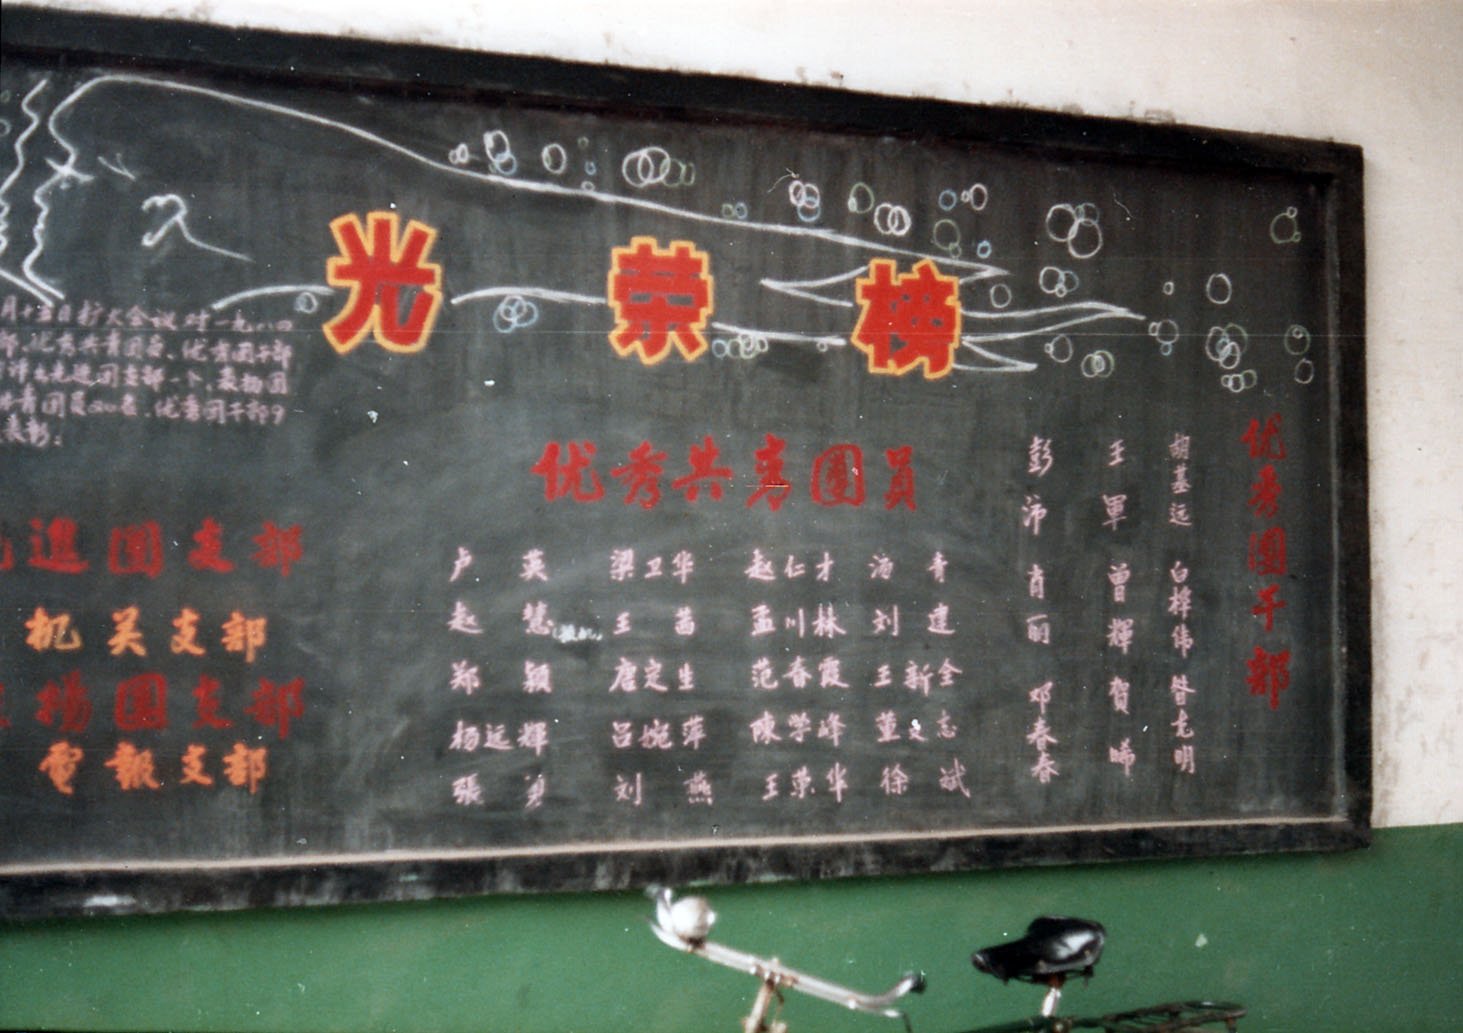 光荣榜
月十五日扩大会议对一九八四
部、优秀共青团员、优秀团干部
先进团支部一个、表扬团
共青团员20名、优秀团干部9
表彰:
進團支部
机关支部
揚團支部
電報支部
优秀共青團員
卢英 梁卫华 赵仁才 汤青
赵慧 王茜 孟川林 刘建
郑颖 唐定生 范春霞 王新全
杨远輝 吕婉萍 陳学峰 董文志
張勇 刘燕 王荣华 徐斌
优秀團干部
胡基远 白梓伟 昝克明
王軍 曾輝 賀晞
彭沛 肖丽 邓春春